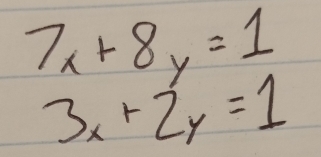 7x + 8y = 1
3x + 2y = 1